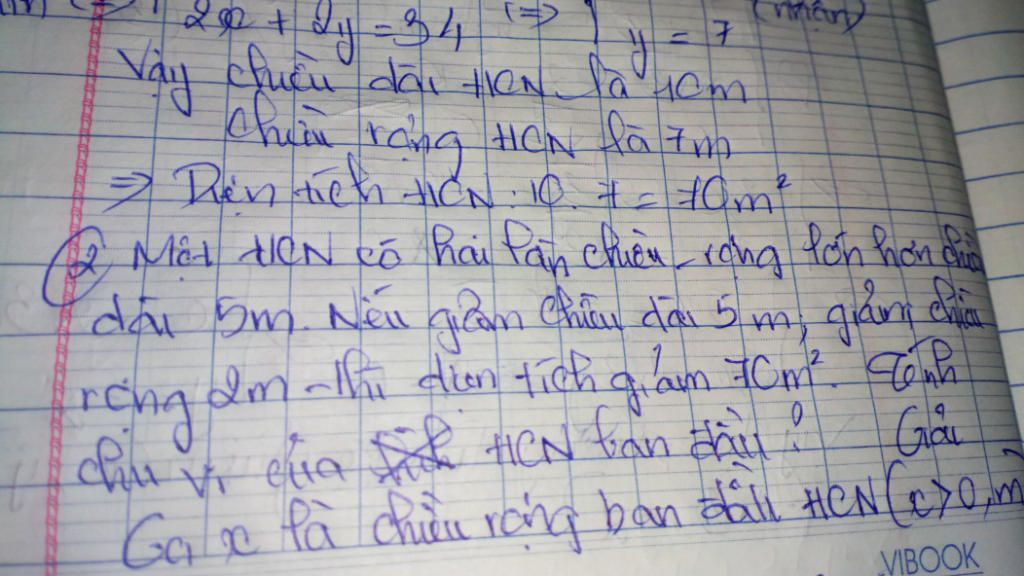 2x + 2y = 34 (=> y = 7 (nhận)
Vậy chiều dài HCN là 10m
Chiều rộng HCN là 7m
=> Diện tích HCN: 10. 7 = 70m²
2 Một HCN có hai lần chiều rộng lớn hơn chiều
dài 5m. Nếu giảm chiều dài 5m, giảm chiều
rộng 2m thì diện tích giảm 70m². Tính
chu vi của HCN ban đầu? Giải
Gọi x là chiều rộng ban đầu HCN (x>0, m
VIBOOK